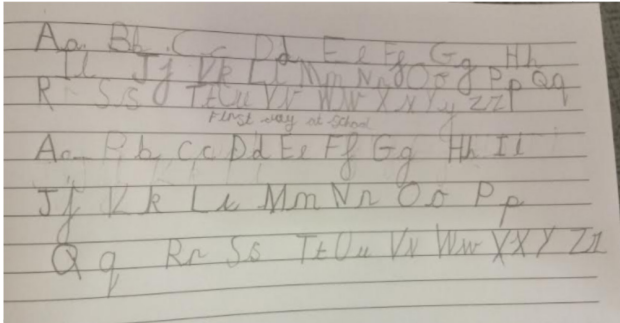 Aa Bb Cc Dd Ee Ff Gg Hh
Ii Jj Kk Ll Mm Nn Oo Pp Qq
R Ss Tt Uu Vv Ww Xx Yy Zz
First way at school
Aa Bb Cc Dd Ee Ff Gg Hh Ii
Jj Kk Ll Mm Nn Oo Pp
Qq Rr Ss Tt Uu Vv Ww XX Y Zz